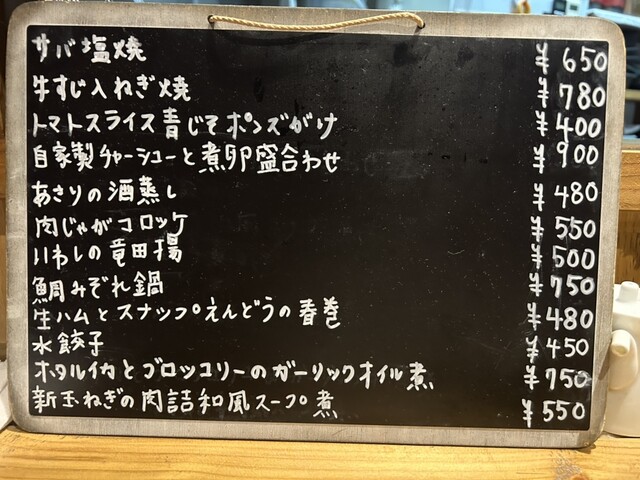 サバ塩焼 ¥650
牛すじ入ねぎ焼 ¥780
トマトスライス青じそポンズがけ ¥400
自家製チャーシューと煮卵盛合わせ ¥900
あさりの酒蒸し ¥480
肉じゃがコロッケ ¥550
いわしの竜田揚 ¥500
鯛みぞれ鍋 ¥750
生ハムとスナップえんどうの春巻 ¥480
水餃子 ¥450
ホタルイカとブロッコリーのガーリックオイル煮 ¥750
新玉ねぎの肉詰和風スープ煮 ¥550